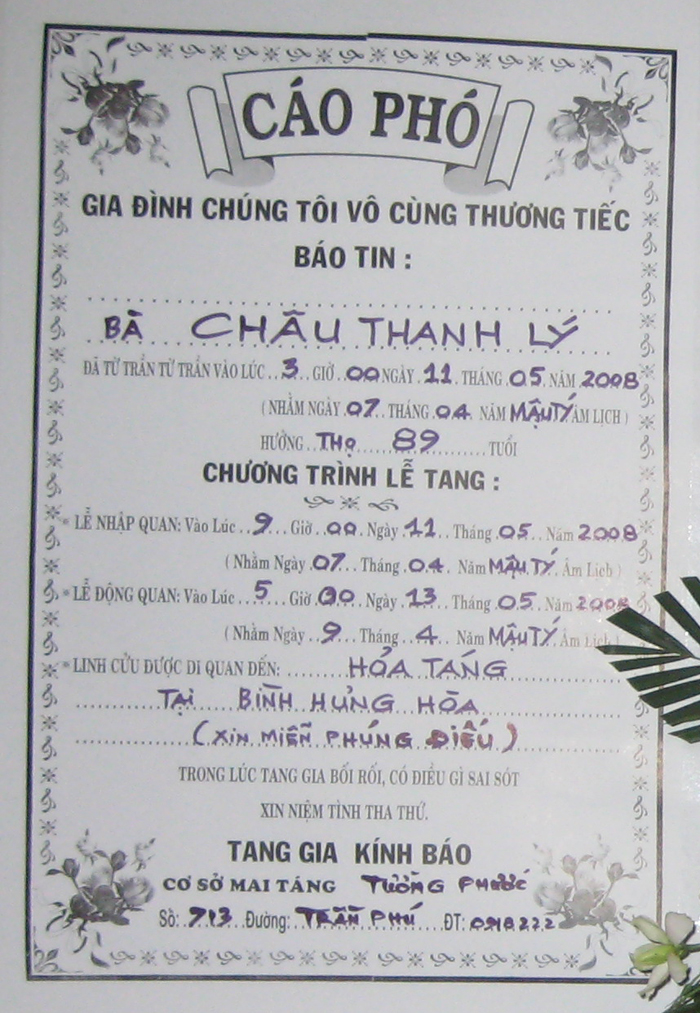 CÁO PHÓ
GIA ĐÌNH CHÚNG TÔI VÔ CÙNG THƯƠNG TIẾC
BÁO TIN :
BÀ CHÂU THANH LÝ
ĐÃ TỪ TRẦN TỪ TRẦN VÀO LÚC 3 GIỜ 00 NGÀY 11 THÁNG 05 NĂM 2008
( NHẰM NGÀY 07 THÁNG 04 NĂM MẬU TÝ ÂM LỊCH )
HƯỞNG THỌ 89 TUỔI
CHƯƠNG TRÌNH LỄ TANG :
* LỄ NHẬP QUAN: Vào Lúc 9 Giờ 00 Ngày 11 Tháng 05 Năm 2008
( Nhằm Ngày 07 Tháng 04 Năm MẬU TÝ Âm Lịch )
* LỄ ĐỘNG QUAN: Vào Lúc 5 Giờ 00 Ngày 13 Tháng 05 Năm 2008
( Nhằm Ngày 9 Tháng 4 Năm MẬU TÝ Âm Lịch )
* LINH CỬU ĐƯỢC DI QUAN ĐẾN: HỎA TÁNG
TẠI BÌNH HƯNG HÒA
( XIN MIỄN PHÚNG ĐIẾU )
TRONG LÚC TANG GIA BỐI RỐI, CÓ ĐIỀU GÌ SAI SÓT
XIN NIỆM TÌNH THA THỨ.
TANG GIA KÍNH BÁO
CƠ SỞ MAI TÁNG TƯỜNG PHƯỚC
Số: 713 Đường: TRẦN PHÚ ĐT: